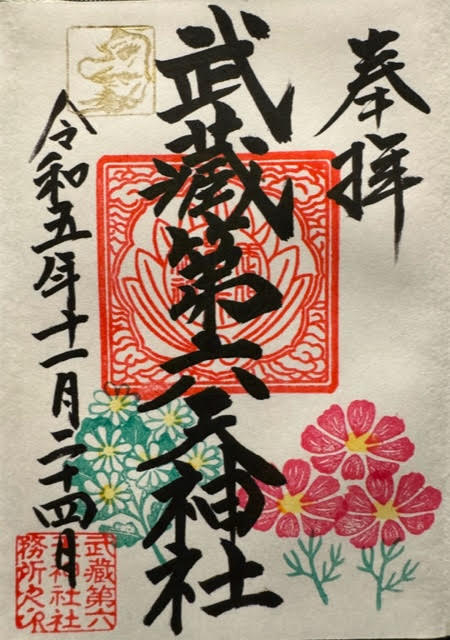 奉拝
武蔵第六天神社
令和五年十一月二十四日
武蔵第六
天神社社
務所之印